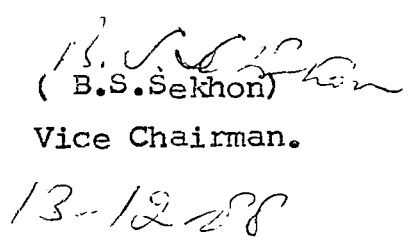 B. S. Sekhon
( B.S.Sekhon)
Vice Chairman.
13-12-88